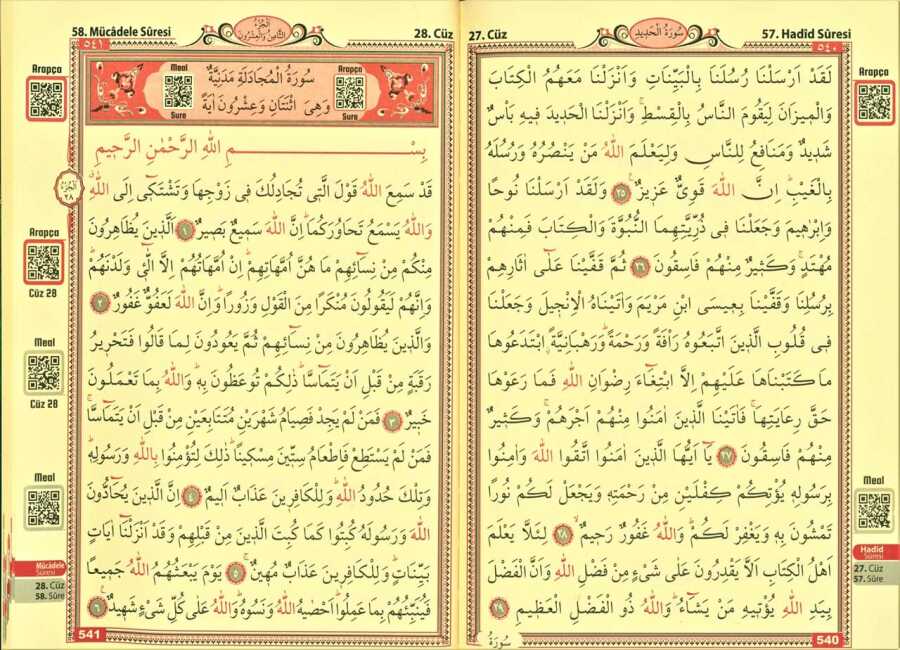 27. Cüz
سُورَةُ الْحَدِيدِ
57. Hadîd Sûresi
٥٤٠
Arapça
لَقَدْ اَرْسَلْنَا رُسُلَنَا بِالْبَيِّنَاتِ وَاَنْزَلْنَا مَعَهُمُ الْكِتَابَ
وَالْمِيزَانَ لِيَقُومَ النَّاسُ بِالْقِسْطِۚ وَاَنْزَلْنَا الْحَدِيدَ فِيهِ بَأْسٌ
شَدِيدٌ وَمَنَافِعُ لِلنَّاسِ وَلِيَعْلَمَ اللّٰهُ مَنْ يَنْصُرُهُ وَرُسُلَهُ
بِالْغَيْبِۜ اِنَّ اللّٰهَ قَوِىٌّ عَزِيزٌ ﴿٢٥﴾ وَلَقَدْ اَرْسَلْنَا نُوحًا
وَاِبْرٰهِيمَ وَجَعَلْنَا فِى ذُرِّيَّتِهِمَا النُّبُوَّةَ وَالْكِتَابَ فَمِنْهُمْ
مُهْتَدٍۚ وَكَثِيرٌ مِنْهُمْ فَاسِقُونَ ﴿٢٦﴾ ثُمَّ قَفَّيْنَا عَلٰٓى اٰثَارِهِمْ
بِرُسُلِنَا وَقَفَّيْنَا بِعِيسَى ابْنِ مَرْيَمَ وَاٰتَيْنَاهُ الْاِنْجِيلَ وَجَعَلْنَا
فِى قُلُوبِ الَّذِينَ اتَّبَعُوهُ رَأْفَةً وَرَحْمَةًۜ وَرَهْبَانِيَّةًۨ ابْتَدَعُوهَا
مَا كَتَبْنَاهَا عَلَيْهِمْ اِلَّا ابْتِغَٓاءَ رِضْوَانِ اللّٰهِ فَمَا رَعَوْهَا
حَقَّ رِعَايَتِهَاۚ فَاٰتَيْنَا الَّذِينَ اٰمَنُوا مِنْهُمْ اَجْرَهُمْۚ وَكَثِيرٌ
مِنْهُمْ فَاسِقُونَ ﴿٢٧﴾ يَٓا اَيُّهَا الَّذِينَ اٰمَنُوا اتَّقُوا اللّٰهَ وَاٰمِنُوا
بِرَسُولِهِ يُؤْتِكُمْ كِفْلَيْنِ مِنْ رَحْمَتِهِ وَيَجْعَلْ لَكُمْ نُورًا
تَمْشُونَ بِهِ وَيَغْفِرْ لَكُمْۜ وَاللّٰهُ غَفُورٌ رَحِيمٌۙ ﴿٢٨﴾ لِئَلَّا يَعْلَمَ
اَهْلُ الْكِتَابِ اَلَّا يَقْدِرُونَ عَلٰى شَىْءٍ مِنْ فَضْلِ اللّٰهِ وَاَنَّ الْفَضْلَ
بِيَدِ اللّٰهِ يُؤْتِيهِ مَنْ يَشَٓاءُۜ وَاللّٰهُ ذُو الْفَضْلِ الْعَظِيمِ ﴿٢٩﴾
Meal
Hadîd
Sûresi
27. Cüz
57. Sûre
سُورَةُ
540
58. Mücâdele Sûresi
اَلْجُزْءُ
الثَّامِنُ وَالْعِشْرُونَ
28. Cüz
٥٤١
Arapça
Meal
Sure
سُورَةُ الْمُجَادَلَةِ مَدَنِيَّةٌ
وَهِىَ اثْنَتَانِ وَعِشْرُونَ اٰيَةً
Arapça
Sure
بِسْمِ اللّٰهِ الرَّحْمٰنِ الرَّحِيمِ
اَلْجُزْءُ
٢٨
قَدْ سَمِعَ اللّٰهُ قَوْلَ الَّتِى تُجَادِلُكَ فِى زَوْجِهَا وَتَشْتَكِٓى اِلَى اللّٰهِۗ
وَاللّٰهُ يَسْمَعُ تَحَاوُرَكُمَاۜ اِنَّ اللّٰهَ سَمِيعٌ بَصِيرٌ ﴿١﴾ اَلَّذِينَ يُظَاهِرُونَ
مِنْكُمْ مِنْ نِسَٓائِهِمْ مَا هُنَّ اُمَّهَاتِهِمْۜ اِنْ اُمَّهَاتُهُمْ اِلَّا الّٰٓـِٔى وَلَدْنَهُمْۜ
وَاِنَّهُمْ لَيَقُولُونَ مُنْكَرًا مِنَ الْقَوْلِ وَزُورًاۜ وَاِنَّ اللّٰهَ لَعَفُوٌّ غَفُورٌ ﴿٢﴾
وَالَّذِينَ يُظَاهِرُونَ مِنْ نِسَٓائِهِمْ ثُمَّ يَعُودُونَ لِمَا قَالُوا فَتَحْرِيرُ
رَقَبَةٍ مِنْ قَبْلِ اَنْ يَتَمَٓاسَّاۜ ذٰلِكُمْ تُوعَظُونَ بِهِۜ وَاللّٰهُ بِمَا تَعْمَلُونَ
خَبِيرٌ ﴿٣﴾ فَمَنْ لَمْ يَجِدْ فَصِيَامُ شَهْرَيْنِ مُتَتَابِعَيْنِ مِنْ قَبْلِ اَنْ يَتَمَٓاسَّاۚ
فَمَنْ لَمْ يَسْتَطِعْ فَاِطْعَامُ سِتِّينَ مِسْكِينًاۜ ذٰلِكَ لِتُؤْمِنُوا بِاللّٰهِ وَرَسُولِهِۜ
وَتِلْكَ حُدُودُ اللّٰهِۜ وَلِلْكَافِرِينَ عَذَابٌ اَلِيمٌ ﴿٤﴾ اِنَّ الَّذِينَ يُحَٓادُّونَ
اللّٰهَ وَرَسُولَهُ كُبِتُوا كَمَا كُبِتَ الَّذِينَ مِنْ قَبْلِهِمْ وَقَدْ اَنْزَلْنَٓا اٰيَاتٍ
بَيِّنَاتٍۜ وَلِلْكَافِرِينَ عَذَابٌ مُهِينٌۚ ﴿٥﴾ يَوْمَ يَبْعَثُهُمُ اللّٰهُ جَمِيعًا
فَيُنَبِّئُهُمْ بِمَا عَمِلُواۜ اَحْصٰيهُ اللّٰهُ وَنَسُوهُۜ وَاللّٰهُ عَلٰى كُلِّ شَىْءٍ شَهِيدٌ ﴿٦﴾
Arapça
Cüz 28
Meal
Cüz 28
Meal
Mücâdele
Sûresi
28. Cüz
58. Sûre
541